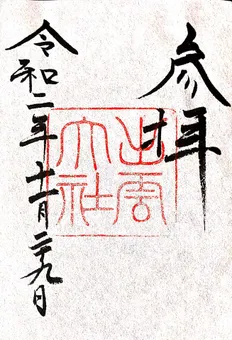 参拝
出雲大社
令和二年十一月二十九日